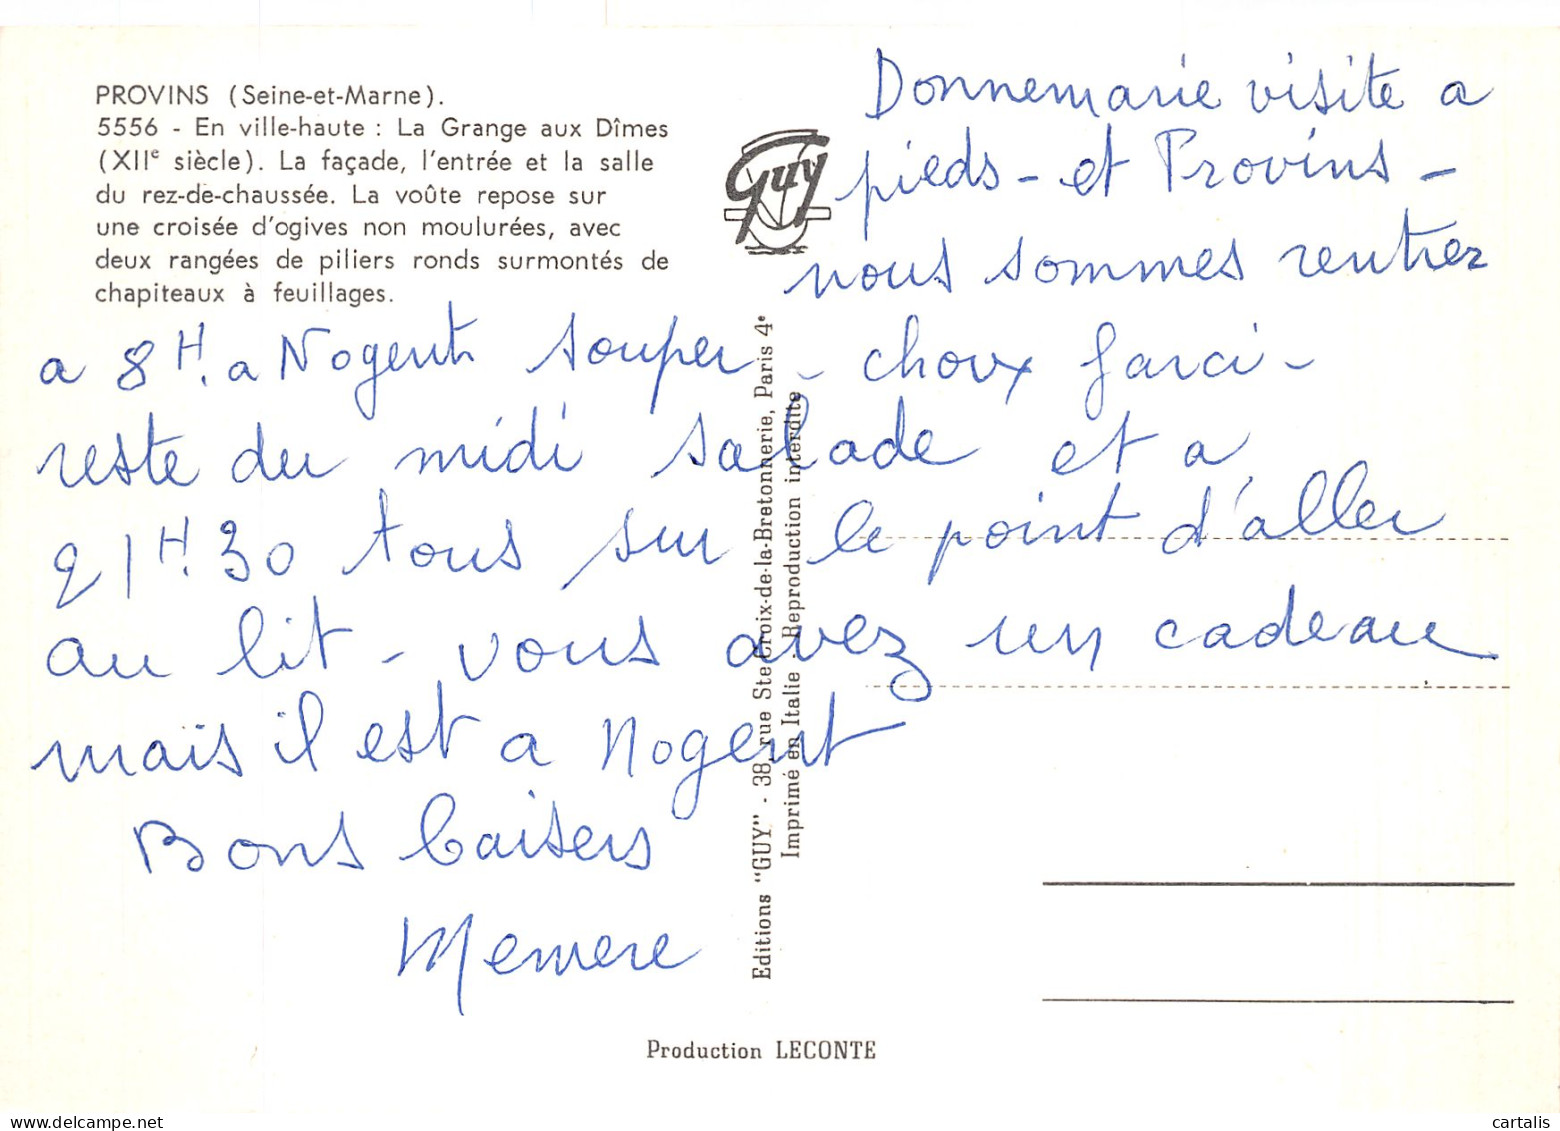 PROVINS (Seine-et-Marne).
5556 - En ville-haute : La Grange aux Dîmes
(XIIe siècle). La façade, l'entrée et la salle
du rez-de-chaussée. La voûte repose sur
une croisée d'ogives non moulurées, avec
deux rangées de piliers ronds surmontés de
chapiteaux à feuillages.
Guy
Donnemarie visite a
pieds - et Provins -
nous sommes rentrez
a 8H. a Nogent souper - choux farci -
reste du midi salade et a
21H.30 tous sur le point d'aller
au lit - vous avez un cadeau
mais il est a Nogent
Bons baisers
Memere
Editions "GUY" - 38, rue Ste Croix-de-la-Bretonnerie, Paris 4e
Imprimé en Italie - Reproduction interdite
Production LECONTE
cartalis